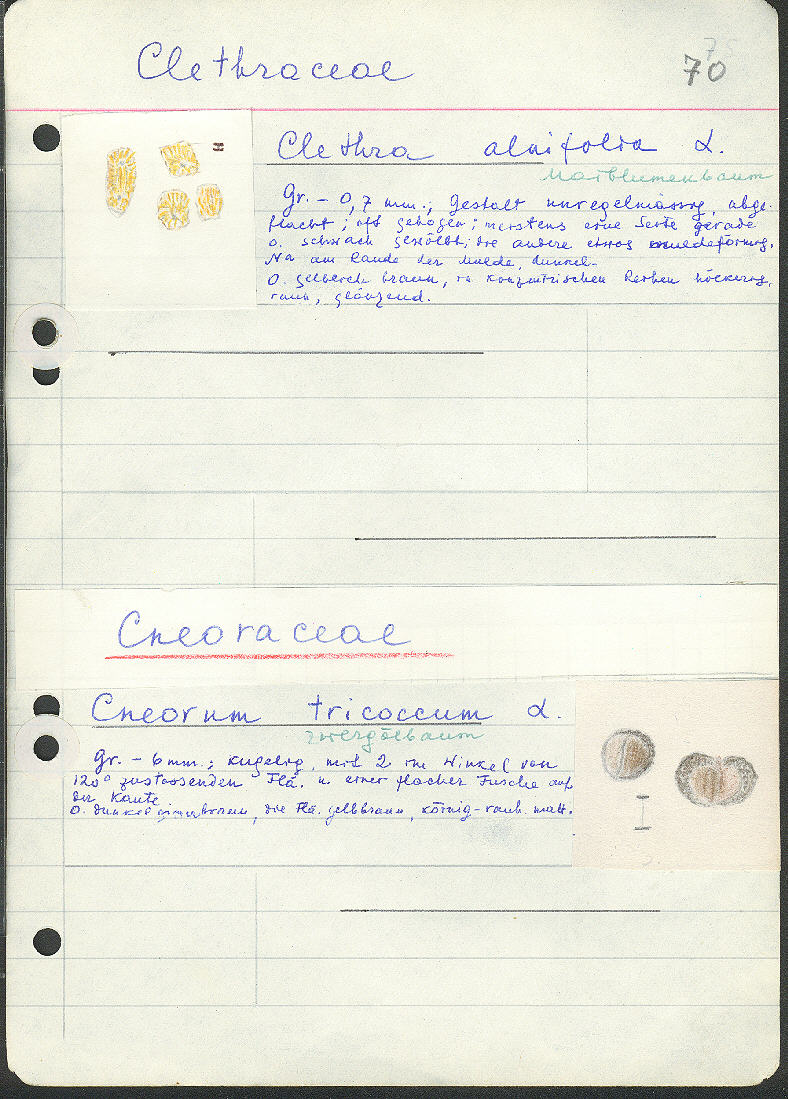 Clethraceae
75
70
Clethra alnifolia L.
Maiblumenbaum
Gr. - 0,7 mm.; Gestalt unregelmässig, abge-
flacht; oft gebogen; meistens eine Seite gerade
o. schwach gewölbt; die andere etwas muldeförmig.
Na am Rande der Mulde, dunkel.
O. gelblich braun, in konzentrischen Reihen höckerig,
rauh, glänzend.
Cneoraceae
Cneorum tricoccum L.
Zwergölbaum
Gr. - 6 mm.; kugelig, mit 2 im Winkel von
120° zustossenden Flä. u. einer flachen Furche auf
der Kante.
O. dunkel braun, die Flä. gelbbraun, körnig-rauh. matt.